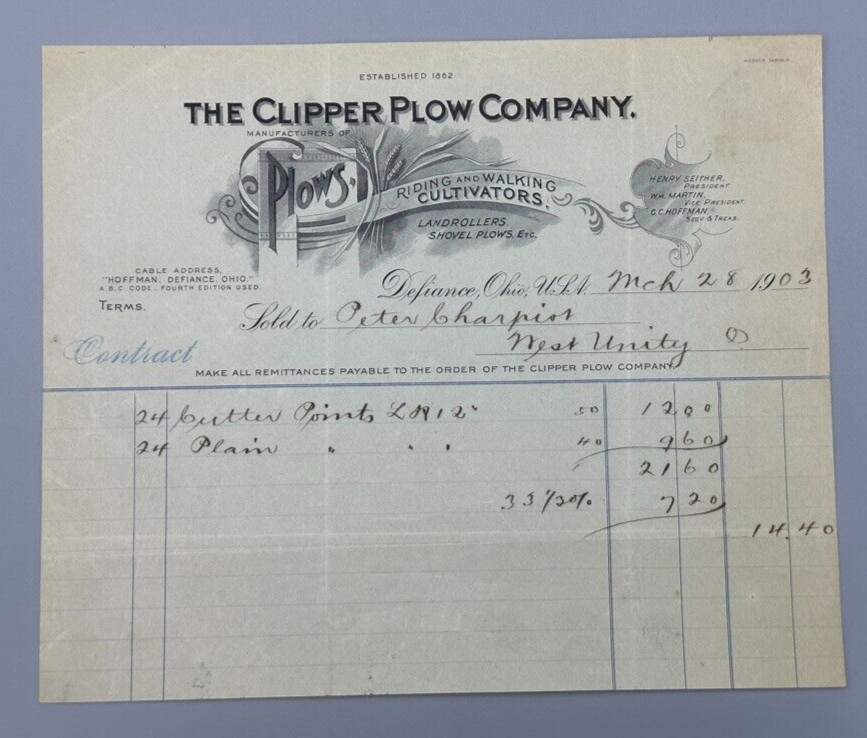 ESTABLISHED 1862
THE CLIPPER PLOW COMPANY.
MANUFACTURERS OF
PLOWS.
RIDING AND WALKING
CULTIVATORS,
LANDROLLERS,
SHOVEL PLOWS, ETC.
HENRY SEITHER,
PRESIDENT.
WM. MARTIN,
VICE PRESIDENT.
C.C. HOFFMAN,
SECY & TREAS.
CABLE ADDRESS,
"HOFFMAN, DEFIANCE, OHIO."
A.B.C. CODE, FOURTH EDITION USED.
TERMS.
Defiance, Ohio, U.S.A. Mch 28 1903
Sold to Peter Charpiot
West Unity O
Contract
MAKE ALL REMITTANCES PAYABLE TO THE ORDER OF THE CLIPPER PLOW COMPANY.
24 Cutter Points LH 12" 50 12 00
24 Plain " " " 40 9 60
21 60
33 1/3 0% 7 20
14.40